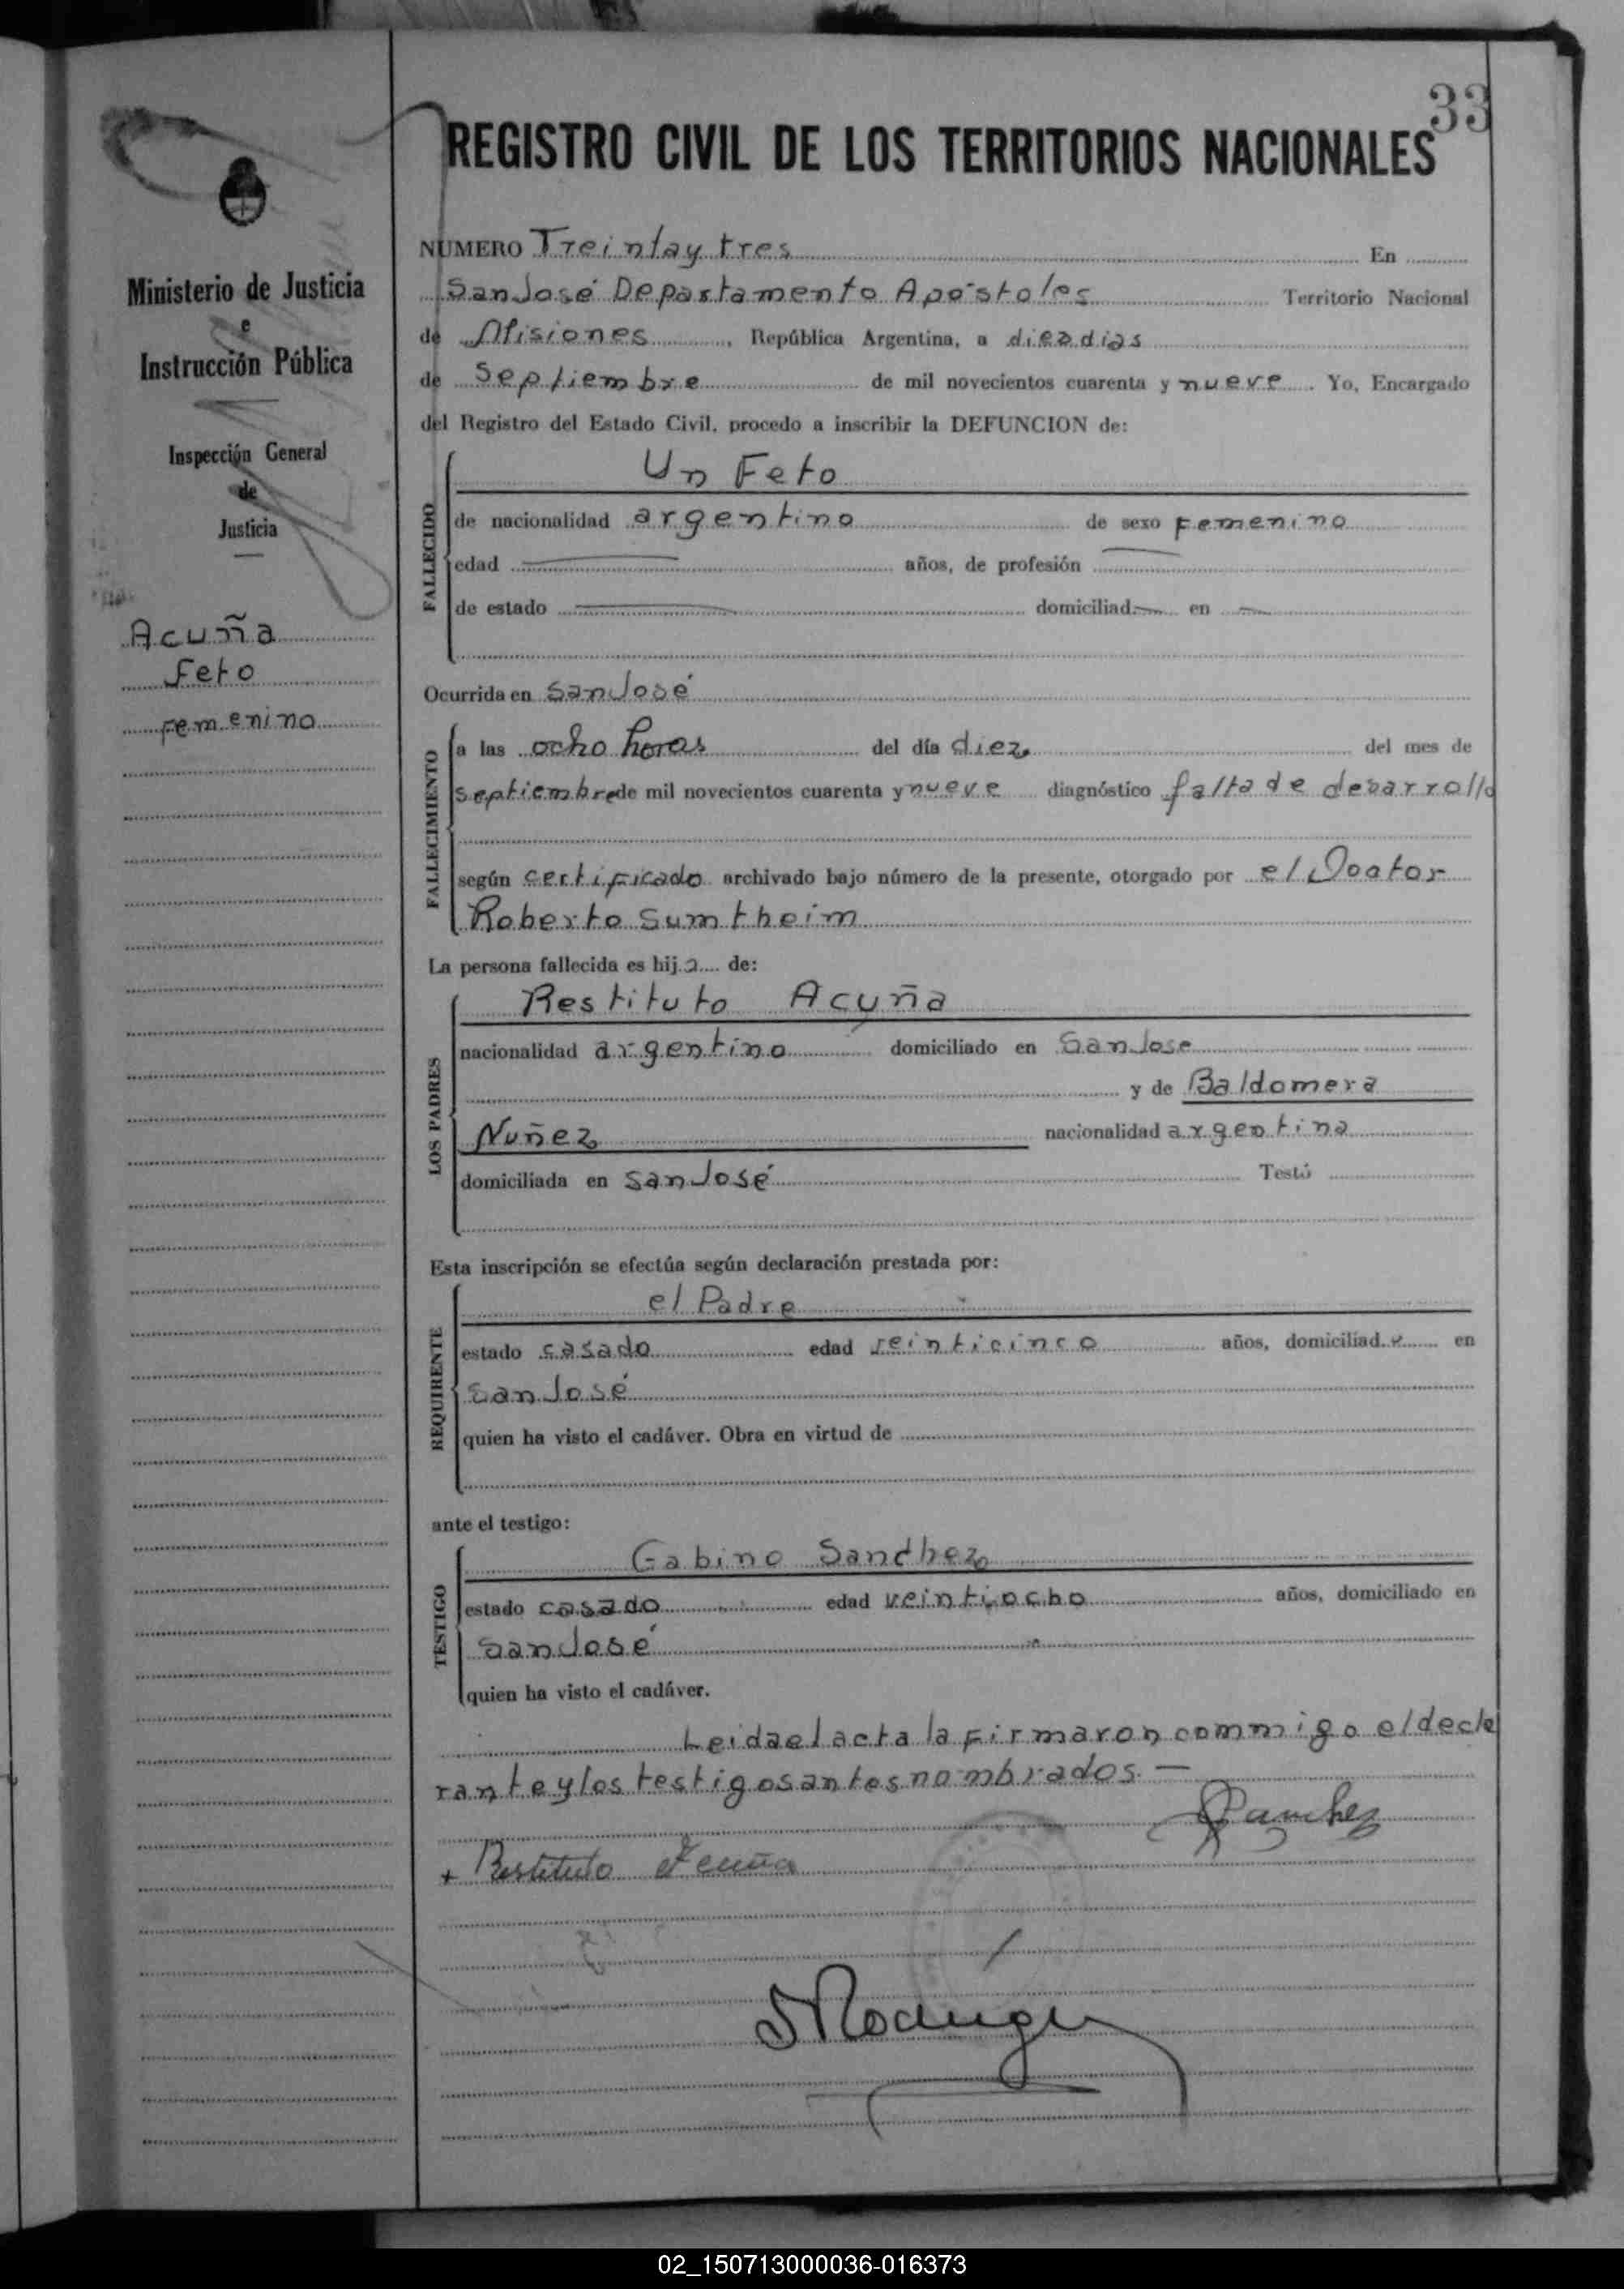 33
REGISTRO CIVIL DE LOS TERRITORIOS NACIONALES
Ministerio de Justicia
e
Instrucción Pública
Inspección General
de
Justicia
Acuña
Feto
Femenino
NUMERO Treintay tres En
San José Departamento Apóstoles Territorio Nacional
de Misiones, República Argentina, a diez dias
de Septiembre de mil novecientos cuarenta y nueve. Yo, Encargado
del Registro del Estado Civil, procedo a inscribir la DEFUNCION de:
FALLECIDO
Un Feto
de nacionalidad argentino de sexo Femenino
edad — años, de profesión —
de estado — domiciliad — en —
Ocurrida en San José
FALLECIMIENTO
a las ocho horas del día diez del mes de
septiembre de mil novecientos cuarenta y nueve diagnóstico falta de desarrollo
según certificado archivado bajo número de la presente, otorgado por el Doctor
Roberto Sumtheim
La persona fallecida es hija de:
LOS PADRES
Restituto Acuña
nacionalidad argentino domiciliado en San Jose
y de Baldomera
Nuñez nacionalidad argentina
domiciliada en San José Testó
Esta inscripción se efectúa según declaración prestada por:
REQUIRENTE
el Padre
estado casado edad veinticinco años, domiciliado en
San José
quien ha visto el cadáver. Obra en virtud de
ante el testigo:
TESTIGO
Gabino Sanchez
estado casado edad veintiocho años, domiciliado en
San José
quien ha visto el cadáver.
Leida el acta la firmaron commigo el decla
rante y los testigos antes nombrados. —
Sanchez
+ Restituto Acuña
02_150713000036-016373